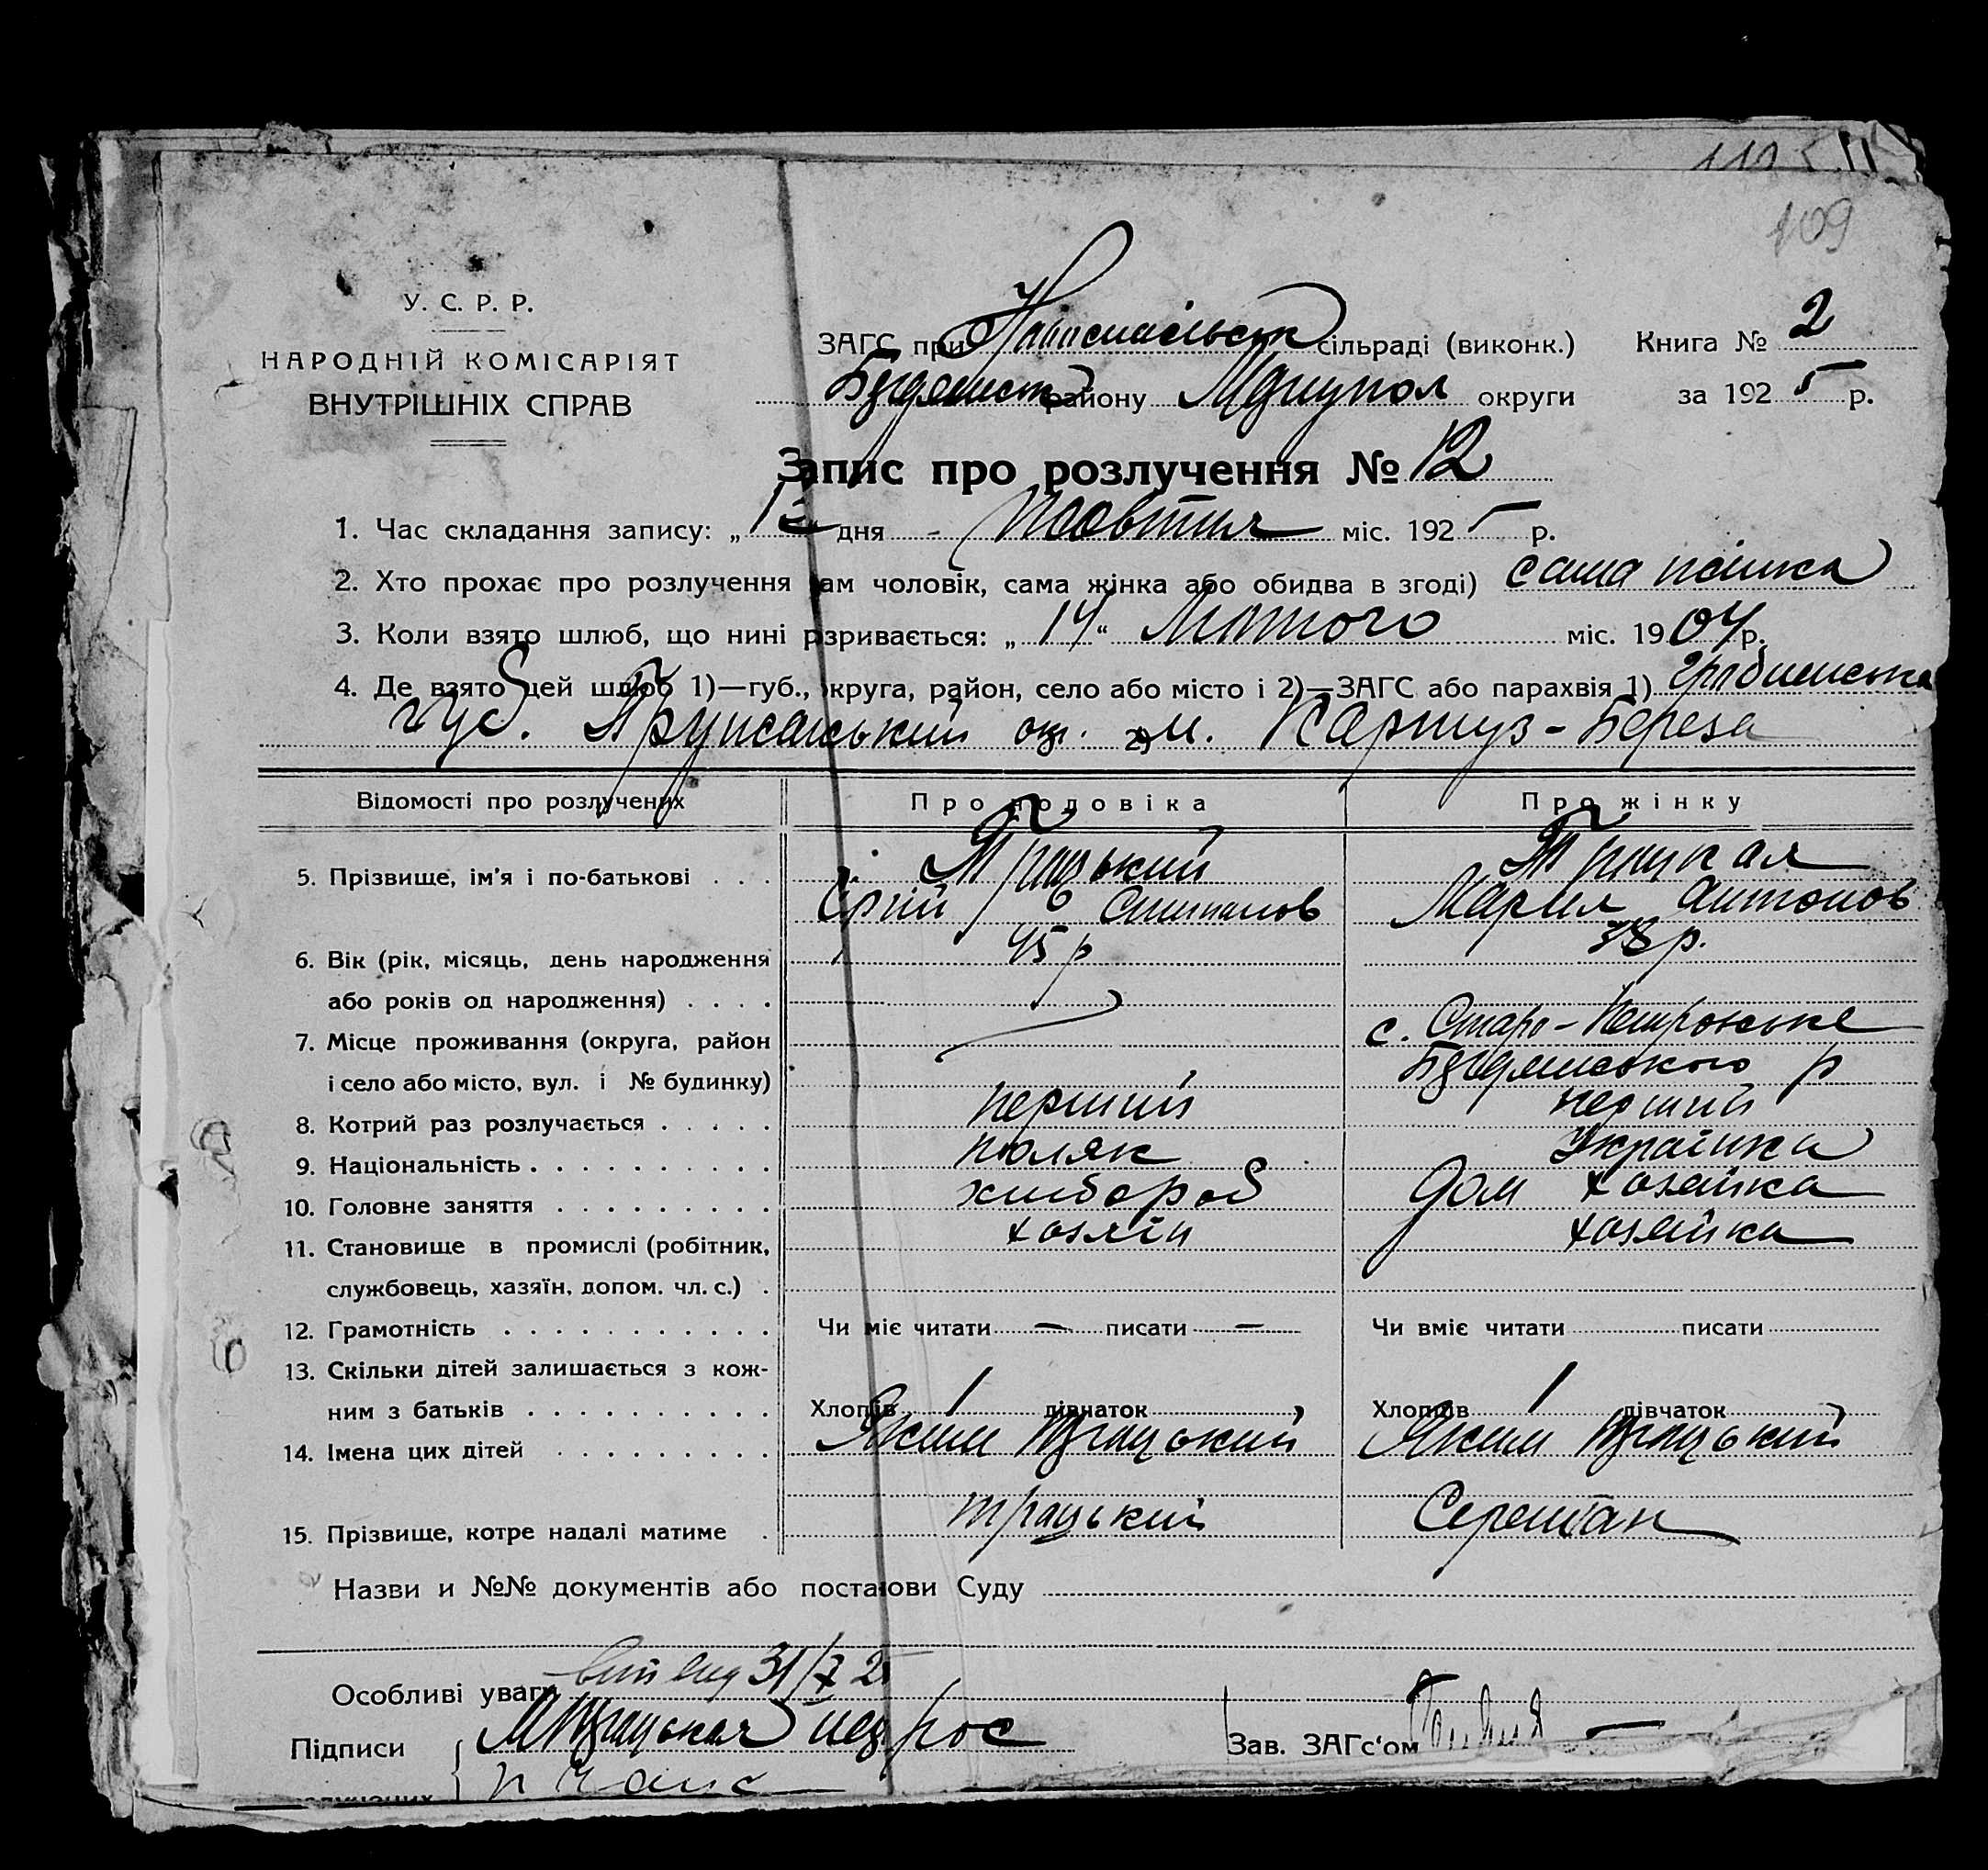 109
У. С. Р. Р.
НАРОДНІЙ КОМІСАРІЯТ
ВНУТРІШНІХ СПРАВ
ЗАГС при Новоспасівськ сільраді (виконк.) Книга № 2
району Мариупол округи за 1925 р.
Запис про розлучення № 12
1. Час складання запису: „12 дня Жовтня міс. 1925 р.
2. Хто прохає про розлучення сам чоловік, сама жінка або обидва в згоді) сама жінка
3. Коли взято шлюб, що нині розривається: „14“ Лютого міс. 1904 р.
4. Де взято цей шлюб 1)—губ., округа, район, село або місто і 2)—ЗАГС або парахвія 1) Гродненська
губ. Пружанський 2) м. Картуз-Береза
Відомості про розлучених Про чоловіка Про жінку
5. Прізвище, ім'я і по-батькові . . . Трацький Трацкая
Юрій Степанов Мария Антонов
6. Вік (рік, місяць, день народження 45 р 38 р.
або років од народження) . . . .
7. Місце проживання (округа, район с. Старо-Петровське
і село або місто, вул. і № будинку) р
8. Котрий раз розлучається . . . . . перший перший
9. Національність . . . . . . . . . . поляк Українка
10. Головне заняття . . . . . . . . . хлібороб дом хозяйка
11. Становище в промислі (робітник, хозяін хозяйка
службовець, хазяїн, допом. чл. с.) .
12. Грамотність . . . . . . . . . . . Чи вміє читати — писати — Чи вміє читати писати
13. Скільки дітей залишається з кож-
ним з батьків . . . . . . . . . . Хлопців 1 дівчаток Хлопців 1 дівчаток
14. Імена цих дітей . . . . . . . . . Яким Трацький Яким Трацький
15. Прізвище, котре надалі матиме . Трацький Серештан
Назви и №№ документів або постанови Суду
Особливі уваги 31/X 25
Підписи М Трацькая Зав. ЗАГс‘ом